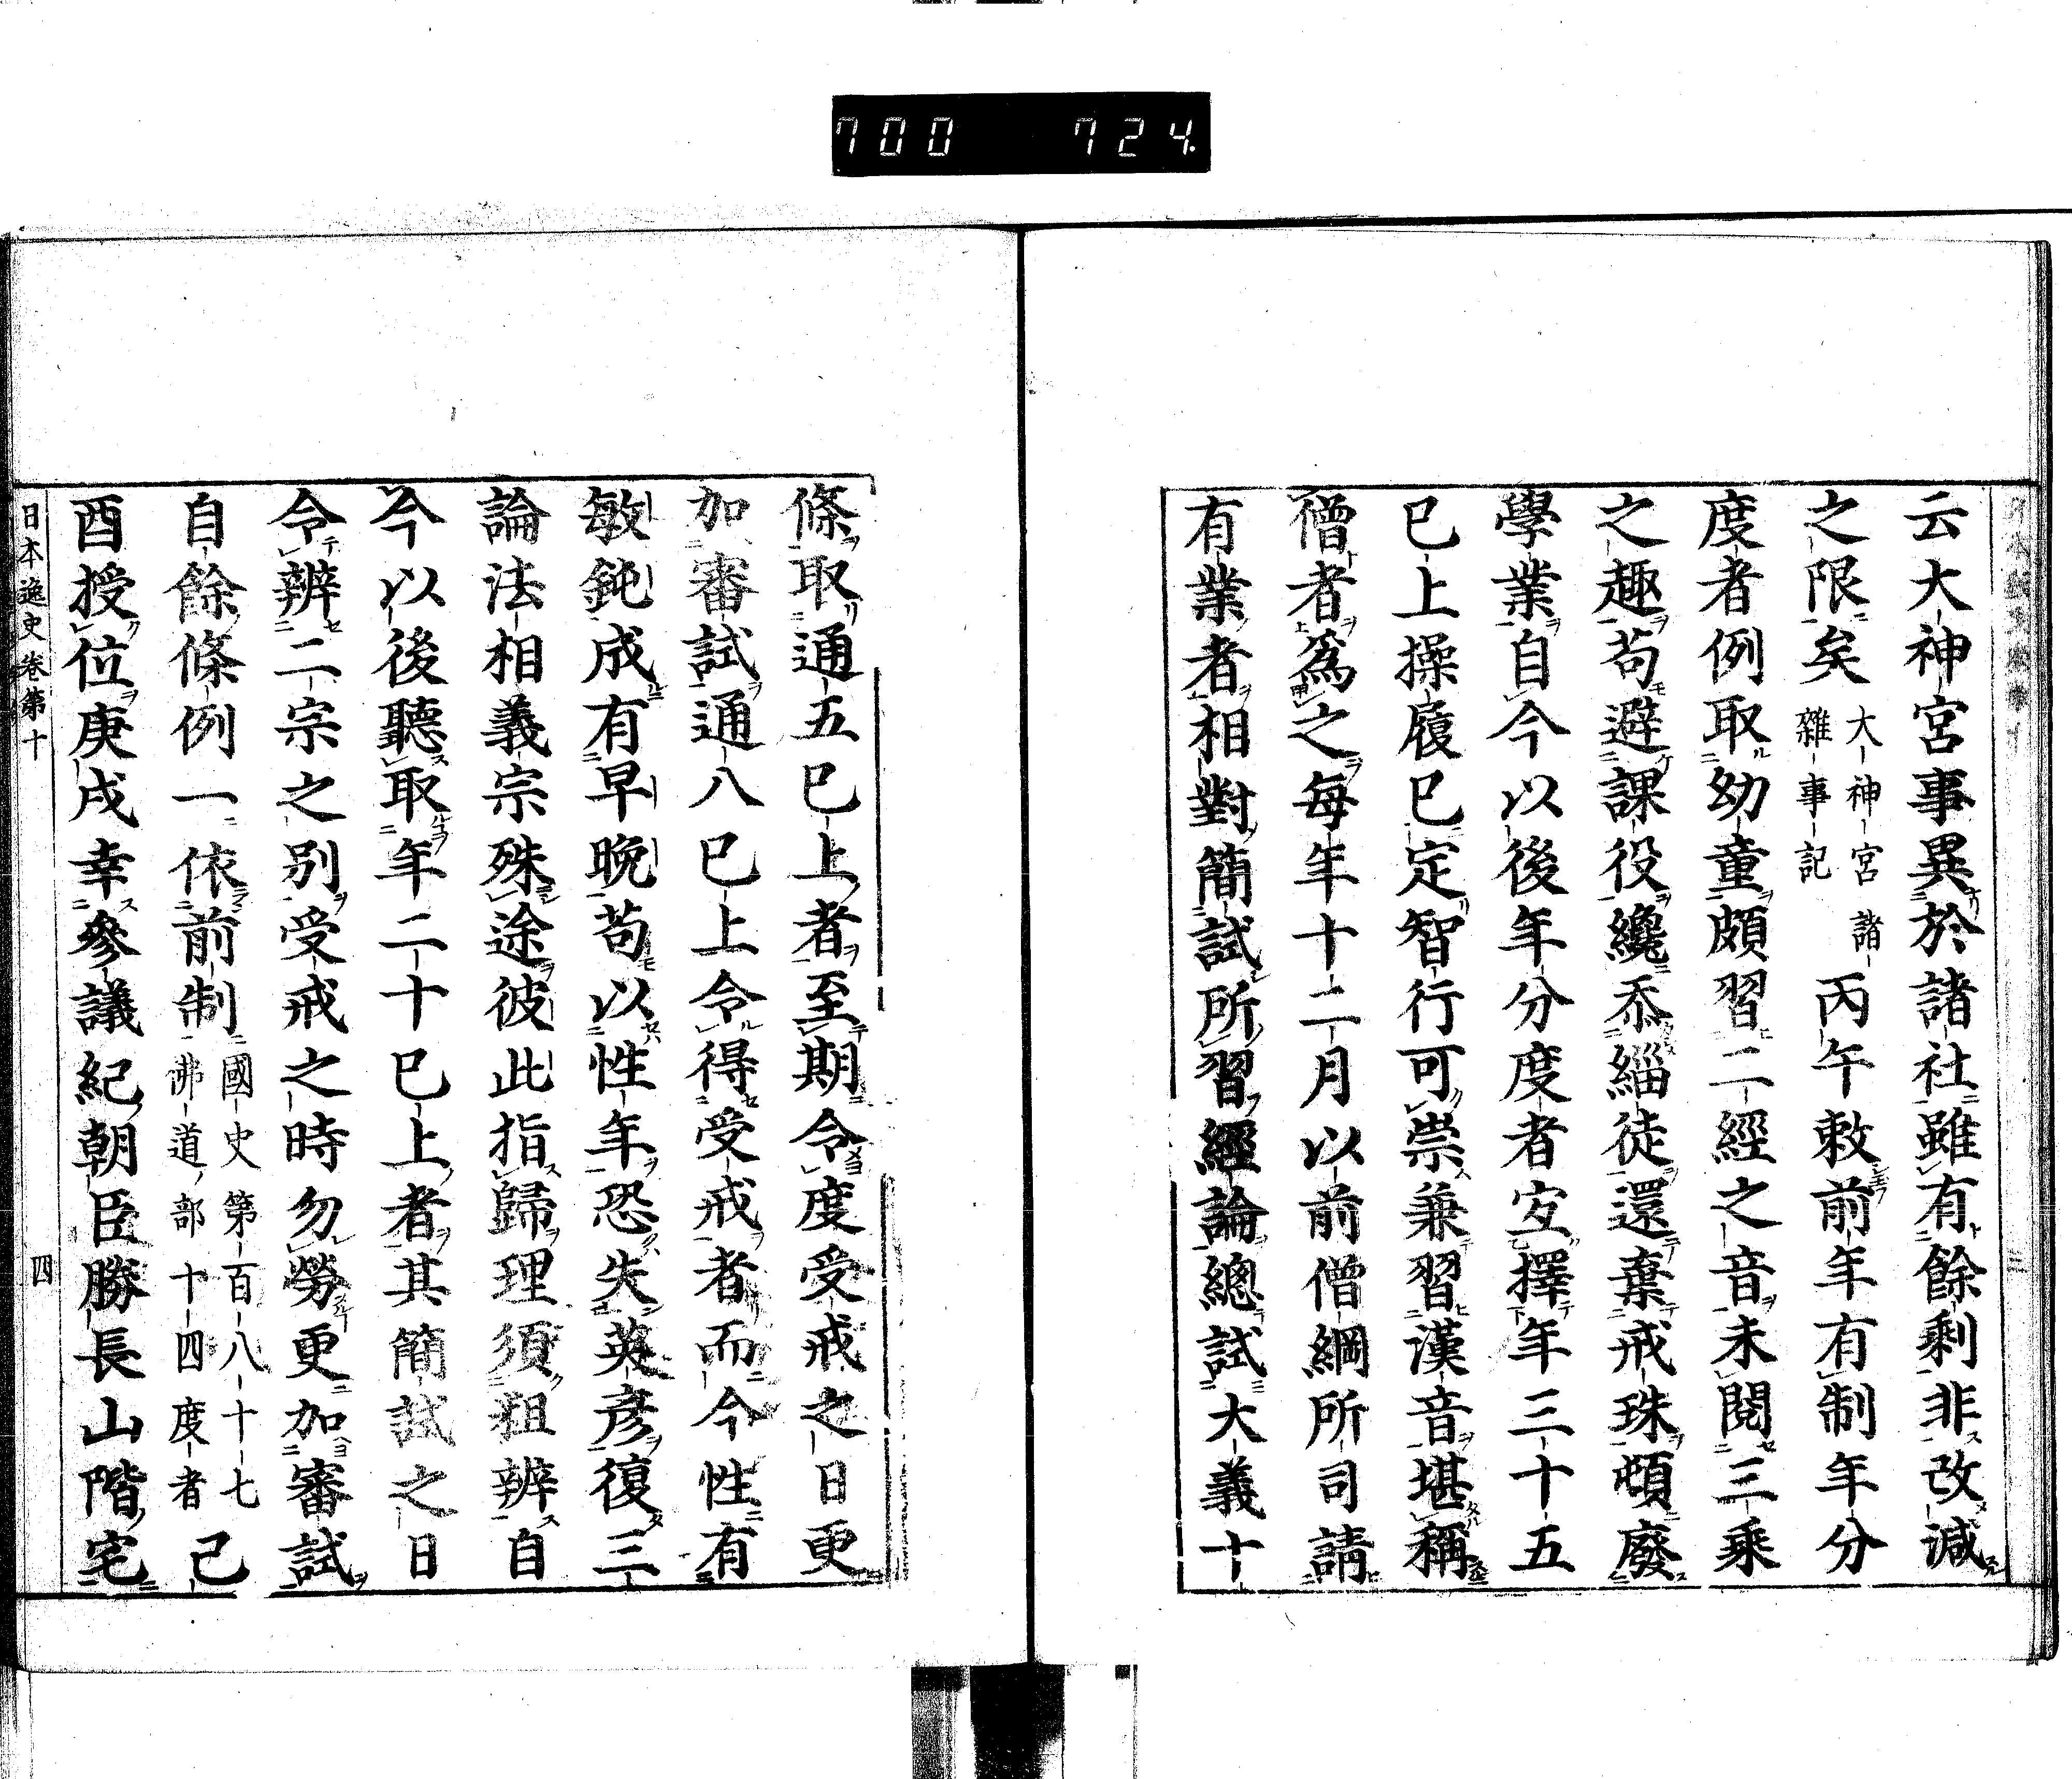 700 724
云大神宮事異於諸社雖有餘剩非改減
之限矣大神宮諸雜事記丙午敕前年有制年分
度者例取幼童頗習二經之音未閱三乘
之趣苟避課役纔忝緇徒還棄戒珠頓廢
學業自今以後年分度者宜擇年三十五
已上操履已定智行可崇兼習漢音堪稱
僧者爲之每年十二月以前僧綱所司請
有業者相對簡試所習經論總試大義十
條取通五已上者至期令度受戒之日更
加審試通八已上令得受戒者而今性有
敏鈍成有早晩苟以性年恐失英彦復三
論法相義宗殊途彼此指歸理須粗辨自
今以後聽取年二十已上者其簡試之日
令辨二宗之別受戒之時勿勞更加審試
自餘條例一依前制國史第百八十七佛道部十四度者己
酉授位庚戌幸參議紀朝臣勝長山階宅
日本逸史卷第十 四